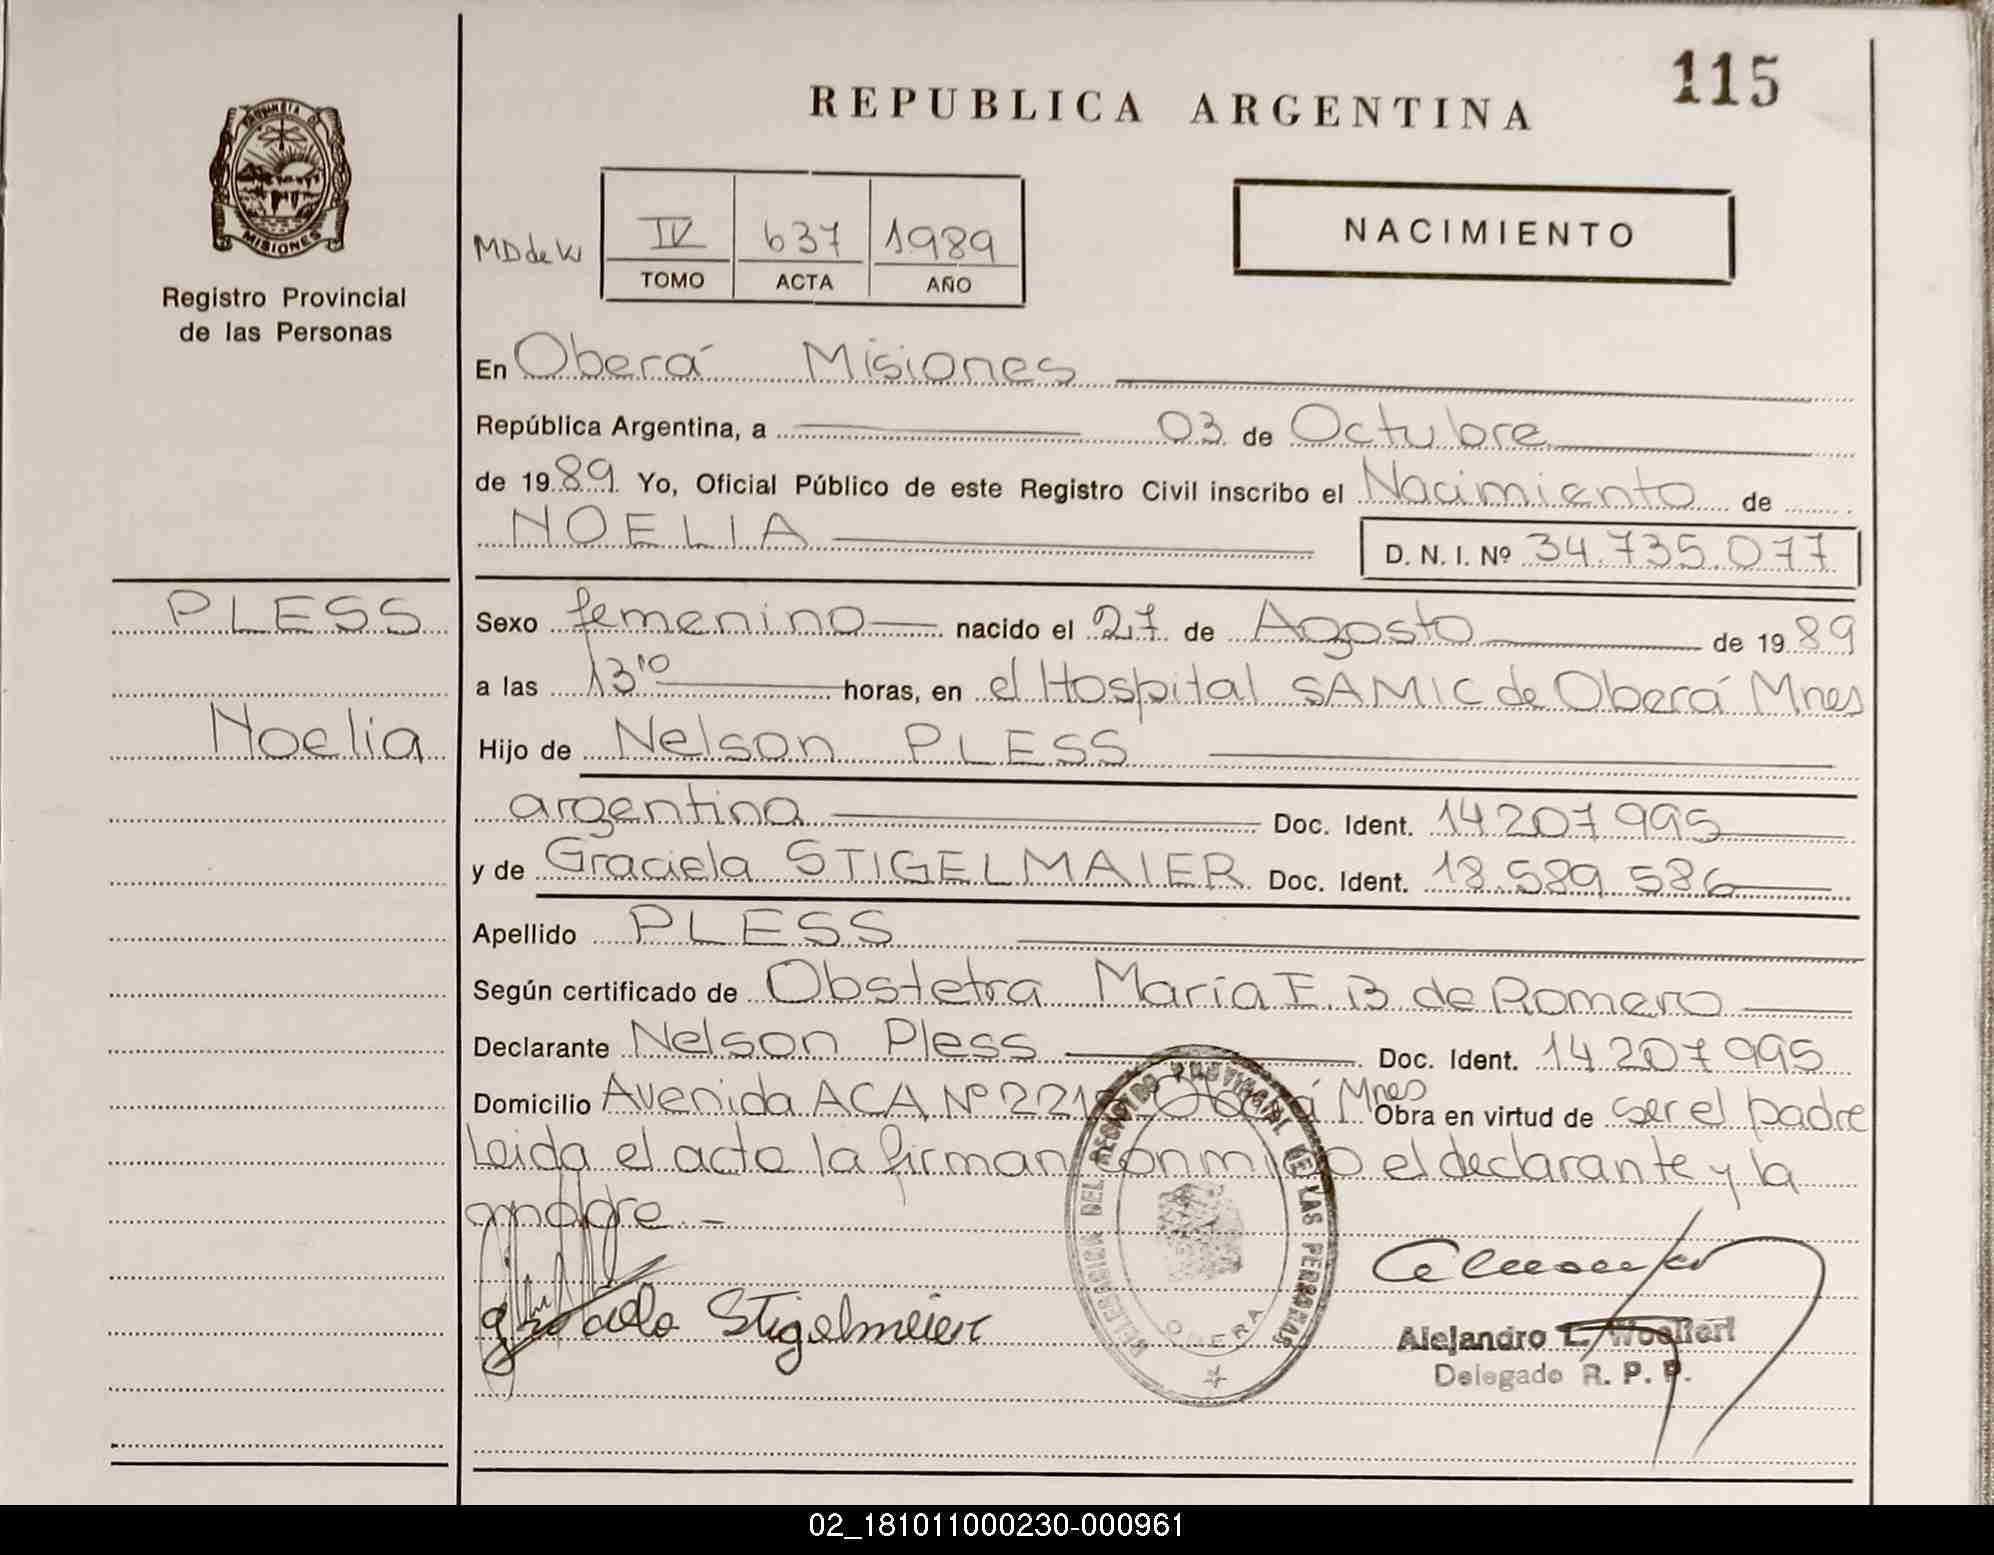 115
REPUBLICA ARGENTINA
PROVINCIA DE
MISIONES
Registro Provincial
de las Personas
MD de K
IV 637 1989
TOMO ACTA AÑO
NACIMIENTO
En Oberá Misiones
República Argentina, a 03 de Octubre
de 1989 Yo, Oficial Público de este Registro Civil inscribo el Nacimiento de
NOELIA D. N. I. Nº 34.735.077
PLESS
Noelia
Sexo femenino nacido el 27 de Agosto de 1989
a las 13¹⁰ horas, en el Hospital SAMIC de Oberá Mnes
Hijo de Nelson PLESS
argentina Doc. Ident. 14207995
y de Graciela STIGELMAIER Doc. Ident. 18.589586
Apellido PLESS
Según certificado de Obstetra María E. B de Romero
Declarante Nelson Pless Doc. Ident. 14207995
Domicilio Avenida ACA Nº 221 Oberá Mnes Obra en virtud de ser el padre
Leida el acta la firman conmigo el declarante y la
madre.-
Stigelmeier
DELEGACION DEL REGISTRO PROVINCIAL DE LAS PERSONAS
OBERA
Alejandro L. Woellert
Delegado R. P. P.
02_181011000230-000961